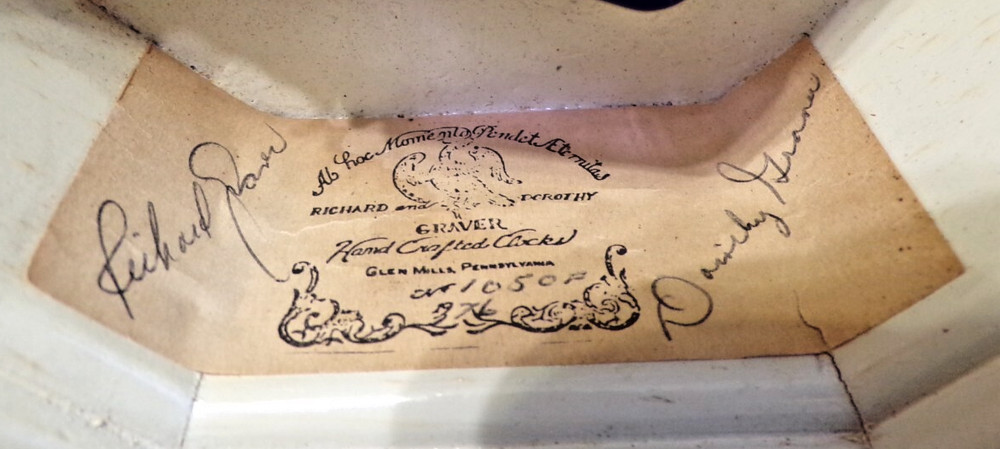 Ab hoc Momento Pendet Æternitas
RICHARD and DOROTHY
GRAVER
Hand Crafted Clocks
GLEN MILLS, PENNSYLVANIA
No 1050F
276
Richard Graver
Dorothy Graver